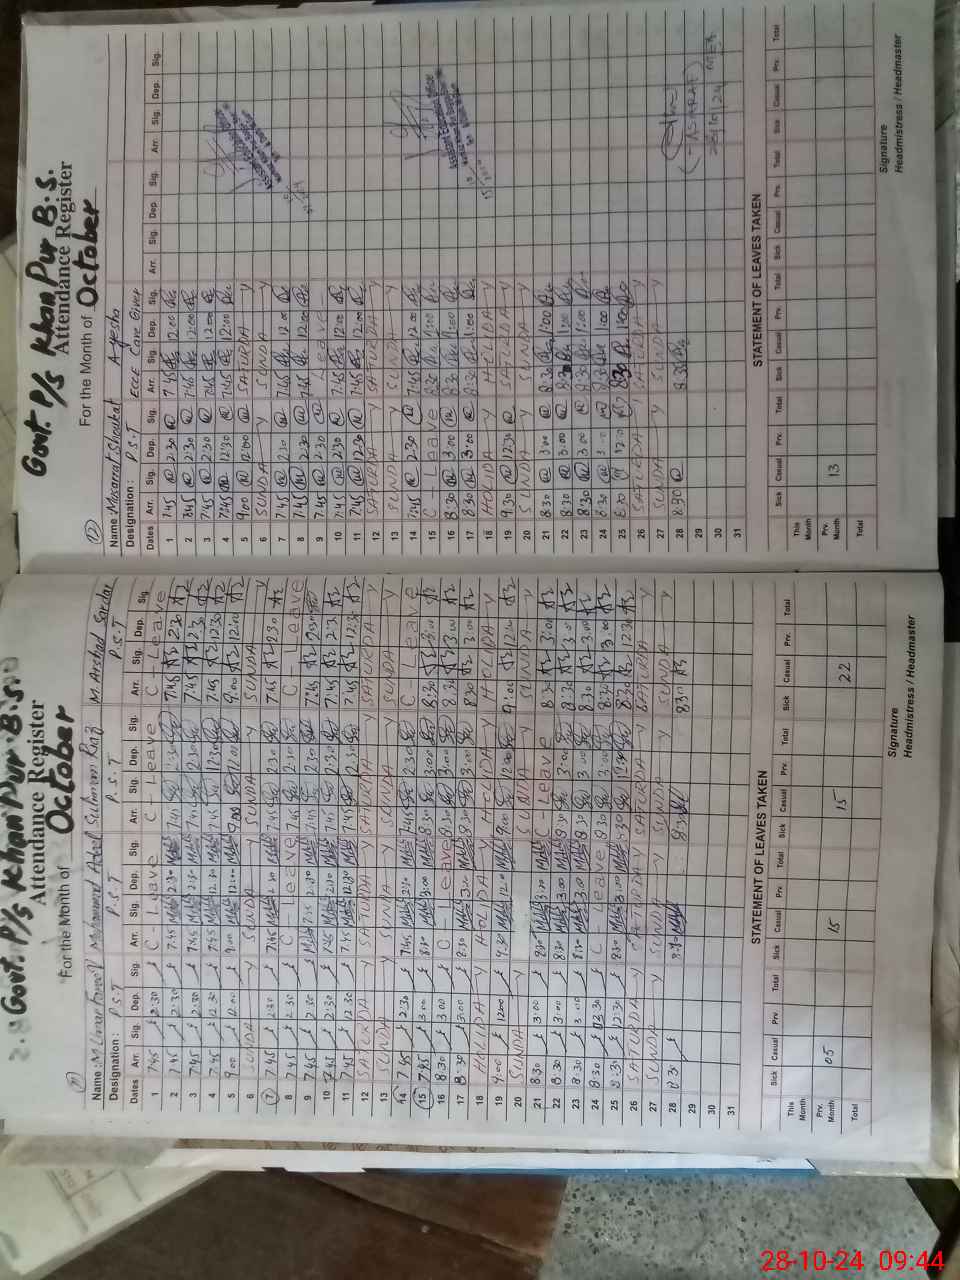 11
Govt. P/s Khan Pur B.S.
Attendance Register
For the Month of October
Name: M Umar Farooq Muhammad Adeel Salman Riaz M. Arshad Sardar
Designation: P.S.T P.S.T P.S.T P.S.T
Dates Arr. Sig. Dep. Sig. Arr. Sig. Dep. Sig. Arr. Sig. Dep. Sig. Arr. Sig. Dep. Sig.
1 7:45 2:30 C - Leave C - Leave C - Leave
2 7:45 2:30 7:45 2:30 7:45 2:30 7:45 2:30
3 7:45 2:30 7:45 2:30 7:45 2:30 7:45 2:30
4 7:45 12:30 7:45 12:30 7:45 12:30 7:45 12:30
5 9:00 12:00 9:00 12:00 9:00 12:00 9:00 12:00
6 SUNDAY SUNDAY SUNDAY SUNDAY
7 7:45 2:30 7:45 2:30 7:45 2:30 7:45 2:30
8 7:45 2:30 C - Leave 7:45 2:30 C - Leave
9 7:45 2:30 2:30 7:45 2:30 7:45 2:30
10 7:45 2:30 7:45 2:30 7:45 2:30 7:45 2:30
11 7:45 12:30 7:45 12:30 7:45 12:30 7:45 12:30
12 SATURDAY SATURDAY SATURDAY SATURDAY
13 SUNDAY SUNDAY SUNDAY SUNDAY
14 7:45 2:30 7:45 2:30 7:45 2:30 C - Leave
15 7:45 3:00 8:30 3:00 8:30 3:00 8:30 3:00
16 8:30 3:00 C - Leave 8:30 3:00 8:30 3:00
17 8:30 3:00 8:30 3:00 8:30 3:00 8:30 3:00
18 HOLIDAY HOLIDAY HOLIDAY HOLIDAY
19 9:00 12:00 9:30 12:00 9:00 12:00 9:00 12:30
20 SUNDAY SUNDAY SUNDAY
21 8:30 3:00 8:30 3:00 C - Leave 8:30 3:00
22 8:30 3:00 8:30 3:00 8:30 3:00 8:30 3:00
23 8:30 3:00 8:30 3:00 8:30 3:00 8:30 3:00
24 8:30 C - Leave 8:30 3:00 8:30 3:00
25 8:30 12:30 8:30 3:00 8:30 12:30 8:30 12:30
26 SATURDAY SATURDAY SATURDAY SATURDAY
27 SUNDAY SUNDAY SUNDAY SUNDAY
28 8:30 8:30 8:30 8:30
29
30
31
STATEMENT OF LEAVES TAKEN
Sick Casual Prv. Total Sick Casual Prv. Total Sick Casual Prv. Total Sick Casual Prv. Total
This Month
Prv. Month 05 15 15 22
Total
Signature
Headmistress / Headmaster
12
Govt. P/s Khan Pur B.S.
Attendance Register
For the Month of October
Name: Musarrat Shoukat Ayesha
Designation: P.S.T ECCE Care Giver
Dates Arr. Sig. Dep. Sig. Arr. Sig. Dep. Sig. Arr. Sig. Dep. Sig. Arr. Sig. Dep. Sig.
1 7:45 2:30 7:45 12:00
2 7:45 2:30 7:45 12:00
3 7:45 2:30 7:45 12:00
4 7:45 12:30 7:45 12:00
5 9:00 12:00 SATURDAY
6 SUNDAY SUNDAY
7 7:45 2:30 7:45 12:00
8 7:45 2:30 7:45 12:00
9 7:45 2:30 Leave
10 7:45 2:30 7:45 12:00
11 7:45 12:30 7:45 12:00
12 SATURDAY SATURDAY
13 SUNDAY SUNDAY
14 7:45 2:30 7:45 12:00
15 C - Leave 8:30 1:00
16 8:30 3:00 8:30 1:00
17 8:30 3:00 8:30 1:00
18 HOLIDAY HOLIDAY
19 9:30 12:30 SATURDAY
20 SUNDAY SUNDAY
21 8:30 3:00 8:30 1:00
22 8:30 3:00 8:30 1:00
23 8:30 3:00 8:30 1:00
24 8:30 3:00 8:30 1:00
25 8:30 8:30 1:00
26 SATURDAY SATURDAY
27 SUNDAY SUNDAY
28 8:30 8:30
29
30
31
STATEMENT OF LEAVES TAKEN
Sick Casual Prv. Total Sick Casual Prv. Total Sick Casual Prv. Total Sick Casual Prv. Total
This Month
Prv. Month 13
Total
Signature
Headmistress / Headmaster
28-10-24 09:44